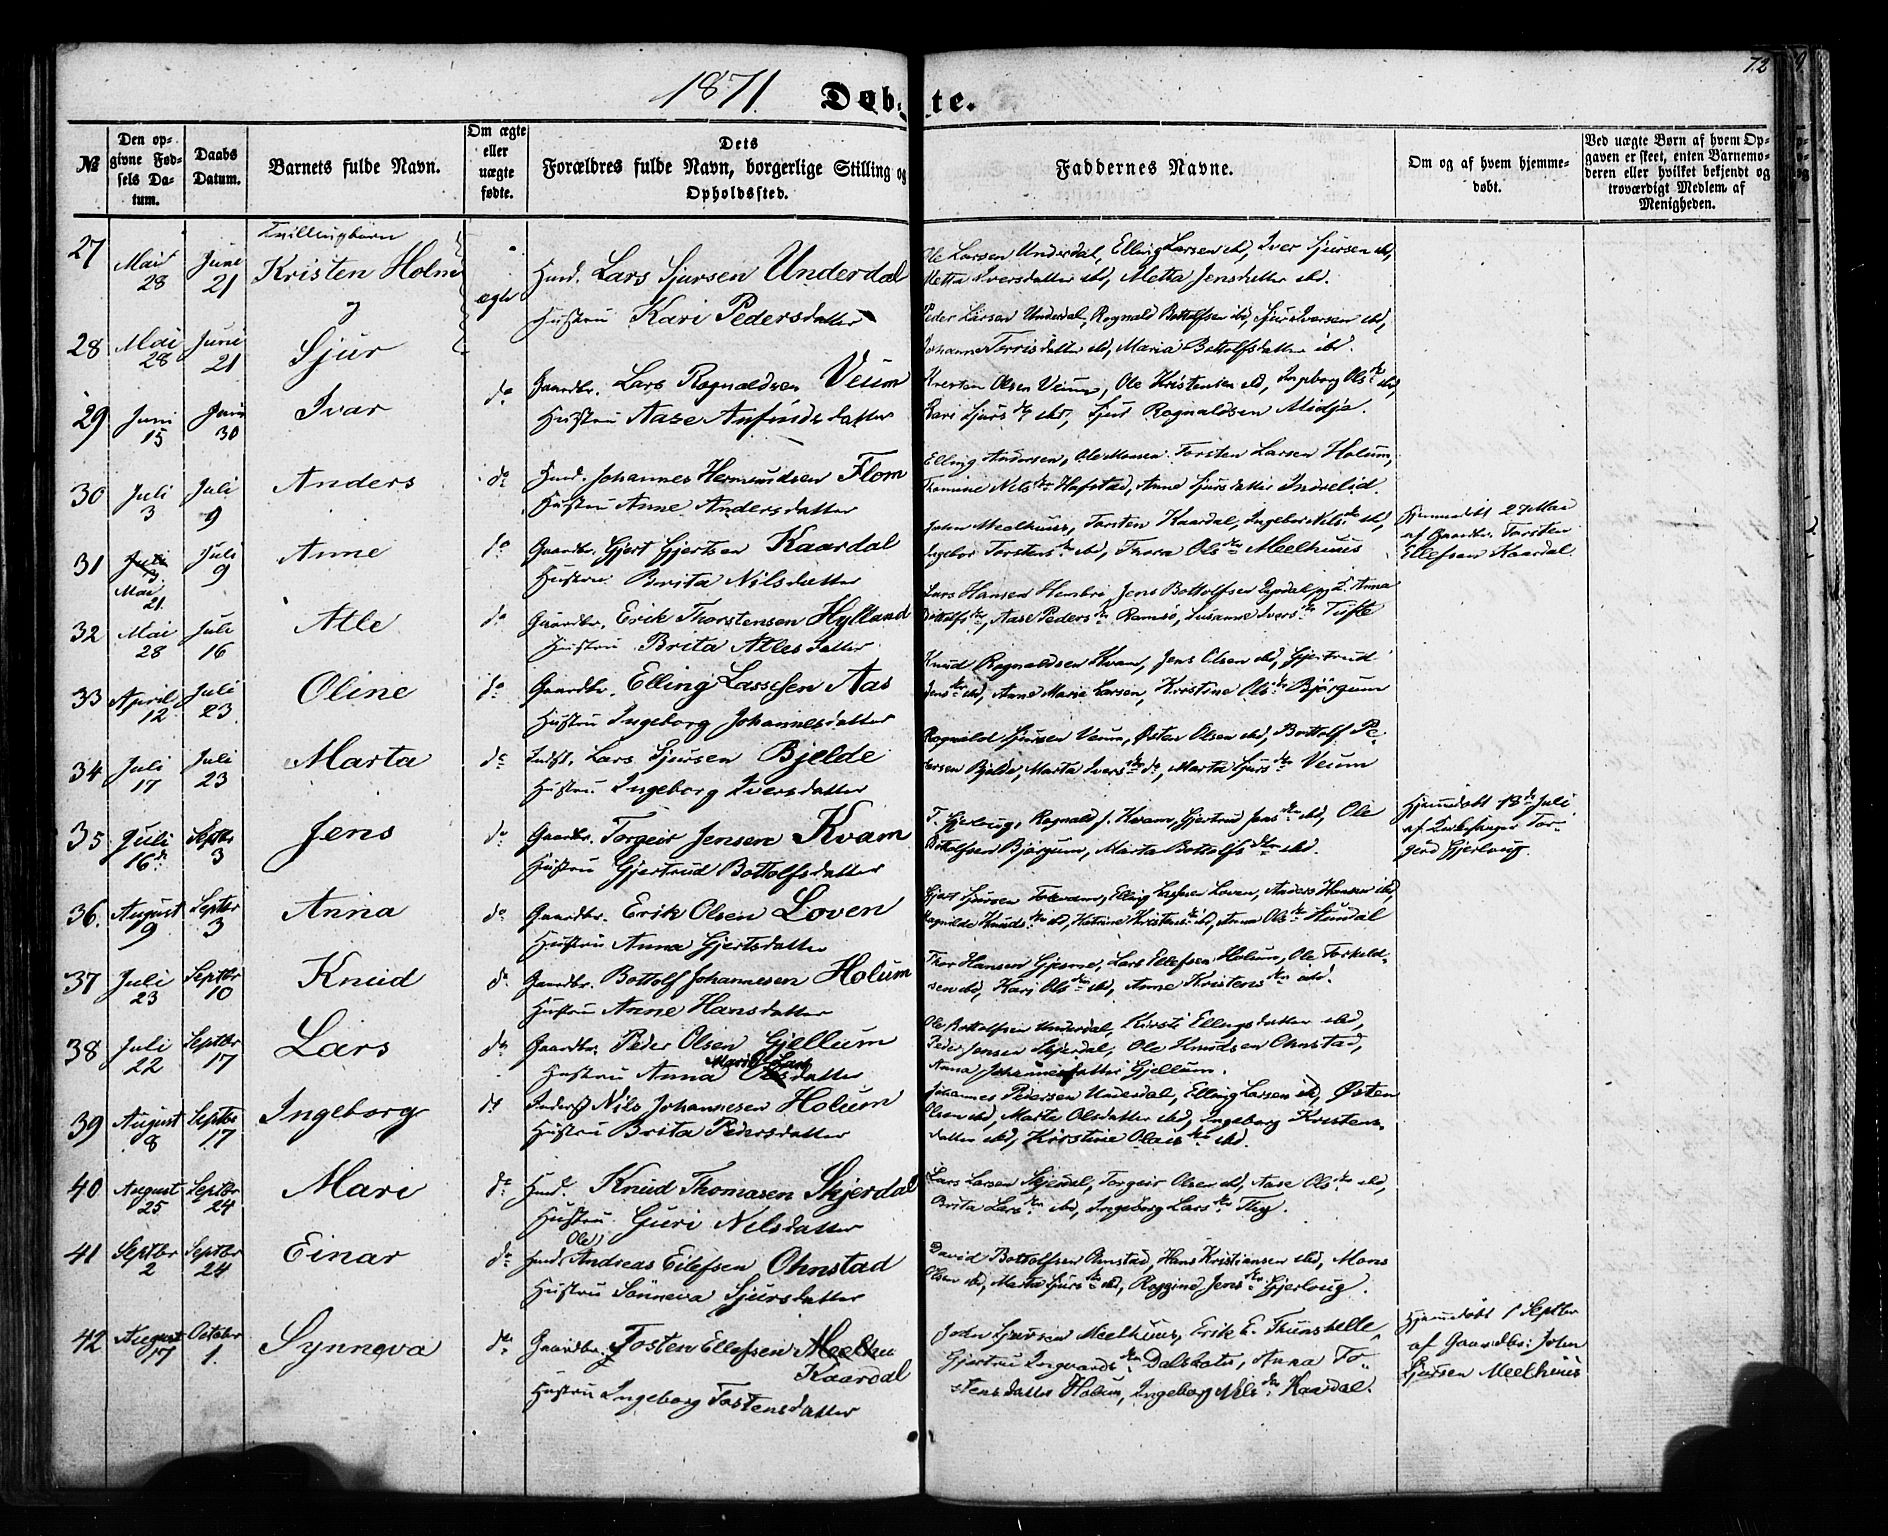 1871. Døb- te. 72
№
Den opgivne Fødsels Datum.
Daabs Datum.
Barnets fulde Navn.
Om ægte eller uægte fødte.
Dets Forældres fulde Navn, borgerlige Stilling og Opholdssted.
Faddernes Navne.
Om og af hvem hjemmedøbt.
Ved uægte Børn af hvem Opgaven er skeet, enten Barnemoderen eller hvilket bekjendt og troværdigt Medlem af Menigheden.
Tvillingbørn
27 Mai 28 Juni 21 Kristen Holm ægte Huusm. Lars Sjursen Underdal
Hustru Kari Pedersdatter
Ole Larsen Underdal, Elling Larsen ibd, Iver Sjursen ibd,
Metta Iversdatter ibd, Metta Jensdatter ibd.
28 Mai 28 Juni 21 Sjur
Peder Larsen Underdal, Rognald Bottolfsen ibd, Sjur Iversen ibd,
Johanne datter ibd, Maria Bottolfsdatter ibd.
29 Juni 15 Juni 30 Ivar do Gaardbr. Lars Rognaldsen Veum
Hustru Aase Anfindsdatter
Kristen Olsen Veum, Ole Kristensen ibd, Ingeborg Olsdtr ibd,
Kari Sjursdtr ibd, Sjur Rognaldsen Midjo.
30 Juli 3 Juli 9 Anders do Huusm. Johannes Hermundsen Flom
Hustru Anne Andersdatter
Elling Andersen, Ole Monsen Torsten Larsen Holum,
Thomine Nilsdtr Hafstad, Anne Sjursdatter Indrelid.
31 Juli 3. Mai 21. Juli 9 Anne do Gaardbr. Gjert Gjertsen Kaardal
Hustru Brita Nilsdatter
John Meelhuus, Torsten Kaardal, Ingebor Nilsdtr ibd,
Ingebor Torstensdtr ibd, Thora Olsdtr Meelhuus
Hjemmedøbt 27 Mai
af Gaardbr. Torsten
Ellefsen Kaardal.
32 Mai 28 Juli 16 Atle do Gaardbr. Erik Thorstensen Hylland
Hustru Brita Atlesdatter
Lars Hansen Jens Bottolfsen Anna
Bottolfsdtr, Aase Pedersdtr Ramsø, Susanne Iversdtr Tufte
33 April 12 Juli 23 Oline do Gaardbr. Elling Lassesen Aas
Hustru Ingeborg Johannesdatter
Knud Rognaldsen Kvam, Jens Olsen ibd, Gjertrud
Jensdtr ibd, Anne Marie Larsen, Kristine Olsdtr Bjørgum
34 Juli 17 Juli 23 Marta do Inderst. Lars Sjursen Bjelde
Hustru Ingeborg Iversdatter
Rognald Sjursen Veum, Østen Olsen ibd, Bottolf Pe-
dersen Bjelde, Marta Iversdtr do, Marta Sjursdtr Veum
35 Juli 16de Septbr 3 Jens do Gaardbr. Torgeir Jensen Kvam
Hustru Gjertrud Bottolfsdatter
T. Gjerløug, Rognald J. Kvam, Gjertrud Jensdtr ibd, Ole
Bottolfsen Bjørgum, Marta Bottolfsdtr ibd.
Hjemmedøbt 18de Juli
af Kirkesanger Tor-
gerd Gjerløug.
36. August 9 Septbr 3 Anna do Gaardbr. Erik Olsen Loven
Hustru Anna Gjertsdatter
Gjert Sjursen Elling Lassesen Loven, Anders Hansen ibd,
Ragnilde Knudsdtr ibd, Katrine Kristensdtr ibd, Anna Olsdtr Stundal
37 Juli 23 Septbr 10 Knud do Gaardbr. Bottolf Johannesen Holum
Hustru Anne Hansdatter
Thor Hansen Gjesme, Lars Ellefsen Holum, Ole Torkeld-
sen ibd, Kari Olsdtr ibd, Anne Kristensdtr ibd.
38 Juli 22 Septbr 17 Lars do Gaardbr. Peder Olsen Gjellum
Hustru Anna Maria Larsdatter
Ole Bottolfsen Underdal, Kirsti Ellingsdatter ibd,
Peder Jensen Skjerdal, Ole Knudsen Ohnstad,
Anna Johannesdatter Gjellum.
39 August 8 Septbr 17 Ingeborg do Inderst Nils Johannesen Holum
Hustru Brita Pedersdatter
Johannes Pedersen Underdal, Elling Larsen ibd, Østen
Olsen ibd, Marta Olsdatter ibd, Ingeborg Kristens-
datter ibd, Kirstine Olaisdtr ibd.
40 August 25 Septbr 24 Mari do Huusm. Knud Thomasen Skjerdal
Hustru Guri Nilsdatter
Lars Larsen Skjerdal, Torgeir Olsen ibd, Aase Olsdtr ibd,
Brita Larsdtr ibd, Ingeborg Larsdtr Flug.
41 Septbr 2 Septbr 24 Einar do Huusm. (Ole) Andreas Eilefsen Ohnstad
Hustru Sønneva Sjursdatter
David Bottolfsen Ohnstad, Hans Kristiansen ibd, Mons
Olsen ibd, Marta Sjursdtr ibd, Raggine Jensdtr Gjerløug.
42 August 17 Octobr 1. Synneva do Gaardbr. Tosten Ellefsen Meelhu
Kaardal
Hustru Ingeborg Tostensdatter
John Sjursen Meelhuus, Erik E. Thunshelle,
Gjertru Ingvardsdtr Dalsbotn, Anna To-
stensdatter Holum, Ingeborg Nilsdtr Kaardal.
Hjemmedøbt 1 Septbr
af Gaardbr: John
Sjursen Meelhuus